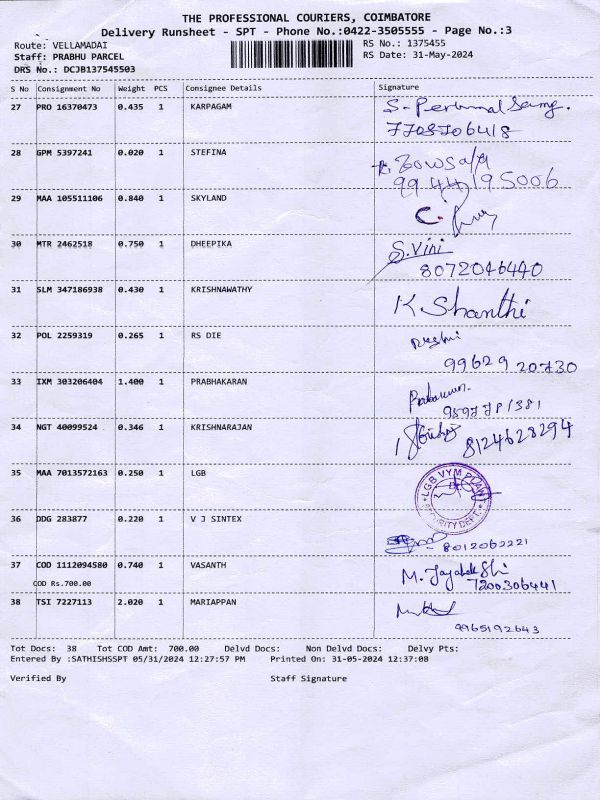 THE PROFESSIONAL COURIERS, COIMBATORE
Delivery Runsheet - SPT - Phone No.:0422-3505555 - Page No.:3
Route: VELLAMADAI RS No.: 1375455
Staff: PRABHU PARCEL RS Date: 31-May-2024
DRS No.: DCJB137545503
S No Consignment No Weight PCS Consignee Details Signature
27 PRO 16370473 0.435 1 KARPAGAM S. Perumal Samy.
7708706418
28 GPM 5397241 0.020 1 STEFINA
99 44 19 5006
29 MAA 105511106 0.840 1 SKYLAND C.
30 MTR 2462518 0.750 1 DHEEPIKA S.Vini
8072046440
31 SLM 347186938 0.430 1 KRISHNAWATHY K Shanthi
32 POL 2259319 0.265 1 RS DIE
99629 20730
33 IXM 303206404 1.400 1 PRABHAKARAN
34 NGT 40099524 0.346 1 KRISHNARAJAN
8124628294
35 MAA 7013572163 0.250 1 LGB LGB VYM PLANT
SECURITY DEPT.
36 DDG 283877 0.220 1 V J SINTEX
8012060221
37 COD 1112094580 0.740 1 VASANTH M. Jayalakshi
COD Rs.700.00 7200306441
38 TSI 7227113 2.020 1 MARIAPPAN
9965192643
Tot Docs: 38 Tot COD Amt: 700.00 Delvd Docs: Non Delvd Docs: Delvy Pts:
Entered By :SATHISHSSPT 05/31/2024 12:27:57 PM Printed On: 31-05-2024 12:37:08
Verified By Staff Signature